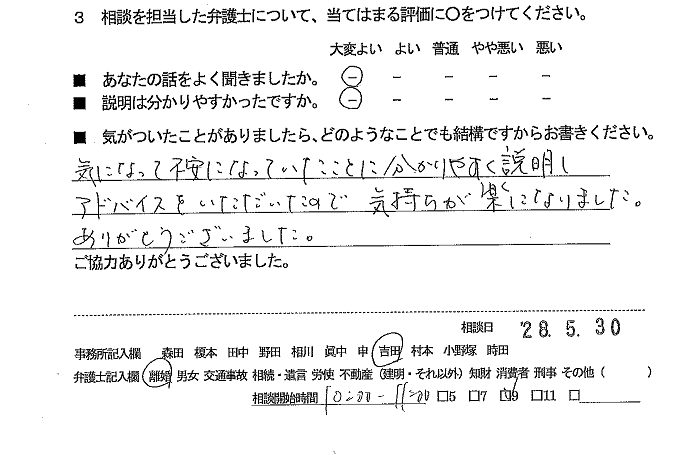 3 相談を担当した弁護士について、当てはまる評価に〇をつけてください。
大変よい よい 普通 やや悪い 悪い
■ あなたの話をよく聞きましたか。 － － － － －
■ 説明は分かりやすかったですか。 － － － － －
■ 気がついたことがありましたら、どのようなことでも結構ですからお書きください。
気になって不安になっていたことに分かりやすく説明し
アドバイスをいただいたので 気持ちが楽になりました。
ありがとうございました。
ご協力ありがとうございました。
相談日 '28.5.30
事務所記入欄 森田 榎本 田中 野田 相川 眞中 申 吉田 村本 小野塚 時田
弁護士記入欄 離婚 男女 交通事故 相続・遺言 労使 不動産（建明・それ以外）知財 消費者 刑事 その他（ ）
相談開始時間 10:00 - 11:00 □5 □7 □9 □11 □